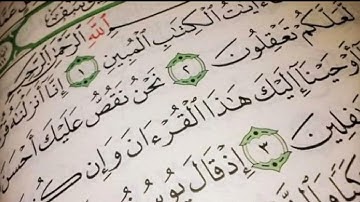 ٱللَّهِ ٱلرَّحْمَٰنِ ٱلرَّحِيمِ
ءَايَٰتُ ٱلْكِتَٰبِ ٱلْمُبِينِ ١ إِنَّآ أَنزَلْنَٰهُ
لَّعَلَّكُمْ تَعْقِلُونَ ٢ نَحْنُ نَقُصُّ عَلَيْكَ أَحْسَنَ
أَوْحَيْنَآ إِلَيْكَ هَٰذَا ٱلْقُرْءَانَ وَإِن
ٱلْغَٰفِلِينَ ٣ إِذْ قَالَ